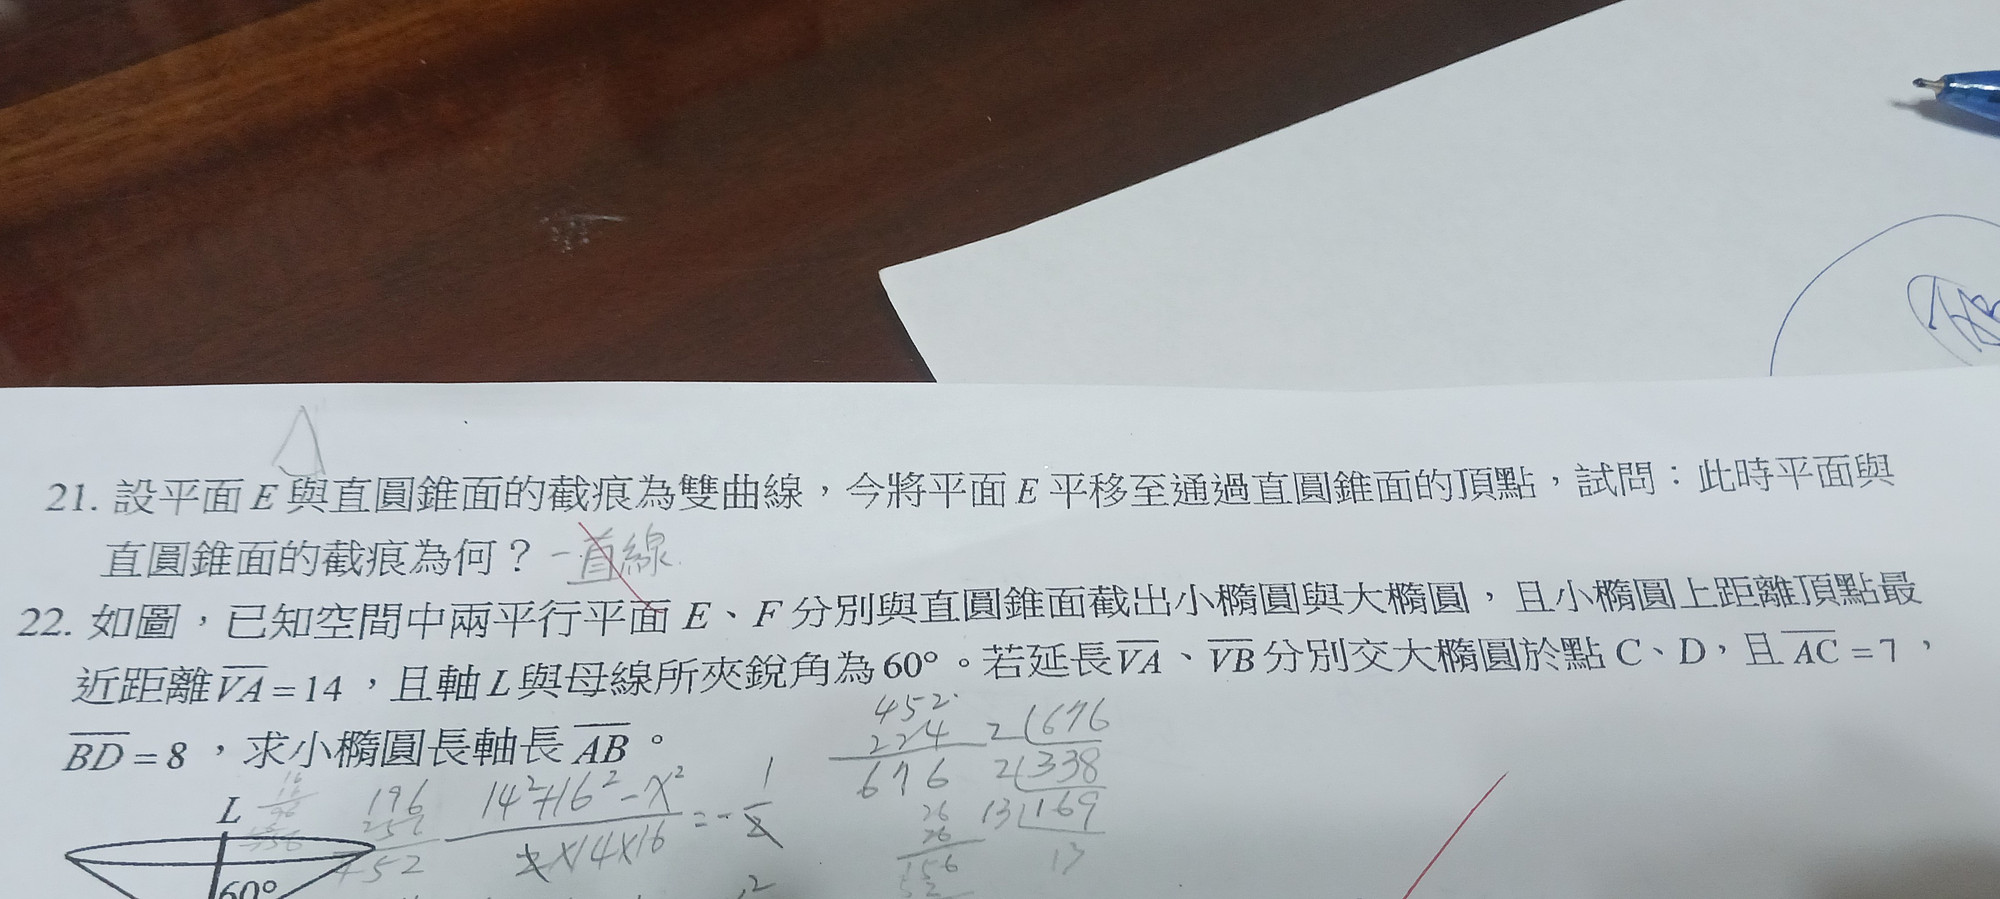 21. 設平面 E 與直圓錐面的截痕為雙曲線，今將平面 E 平移至通過直圓錐面的頂點，試問：此時平面與
直圓錐面的截痕為何？ 一直線
22. 如圖，已知空間中兩平行平面 E、F 分別與直圓錐面截出小橢圓與大橢圓，且小橢圓上距離頂點最
近距離 VA = 14，且軸 L 與母線所夾銳角為 60°。若延長 VA、VB 分別交大橢圓於點 C、D，且 AC = 7，
BD = 8，求小橢圓長軸長 AB。
452
224
676
2 676
2 338
13 169
13
196
452
14²+16²-x²
2×14×16
= -1/2
26
26
156
L
60°